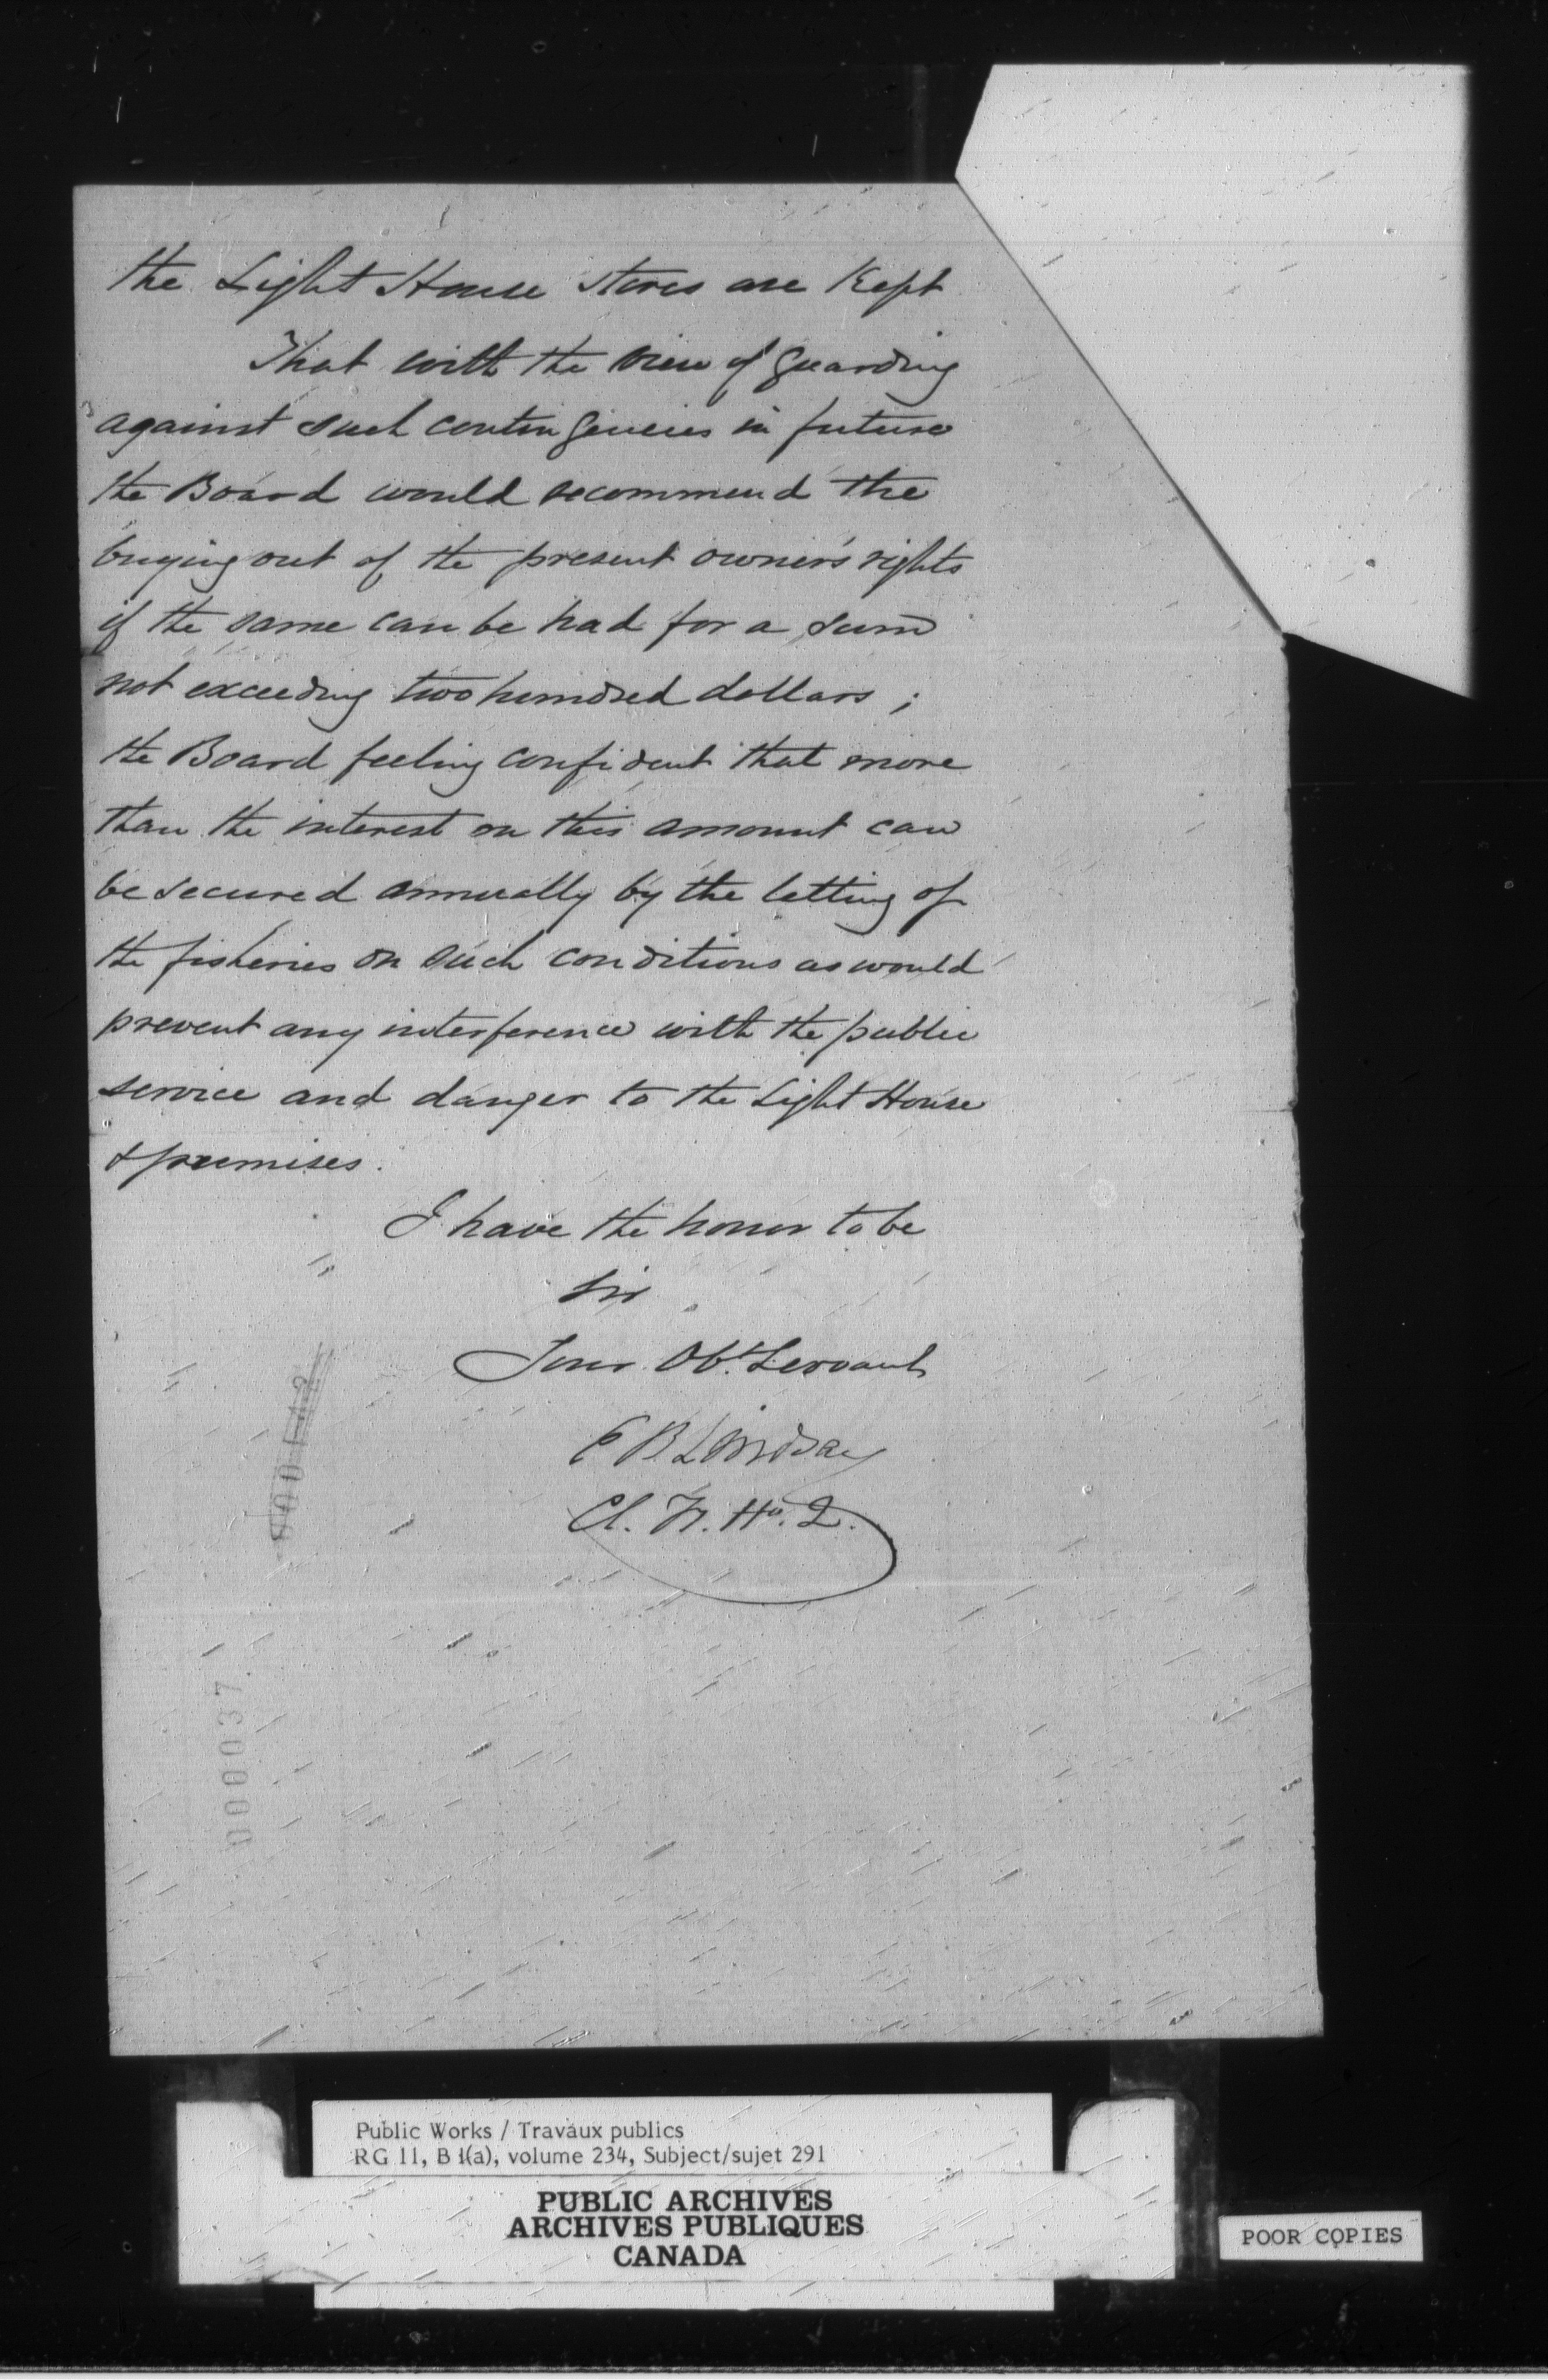 the Light House stores are Kept
That with the view of guarding
against such contingencies in future
the Board would recommend the
buying out of the present owner's rights
if the same can be had for a sum
not exceeding two hundred dollars ;
the Board feeling confident that more
than the interest on this amount can
be secured annually by the letting of
the fisheries on such conditions as would
prevent any interference with the public
service and danger to the Light House
& premises.
I have the honor to be
Sir
Your Obt. Servant
E B Lindsay
Cl. Tr. Ho. Q.
000037
Public Works / Travaux publics
RG 11, B 1(a), volume 234, Subject/sujet 291
PUBLIC ARCHIVES
ARCHIVES PUBLIQUES
CANADA
POOR COPIES